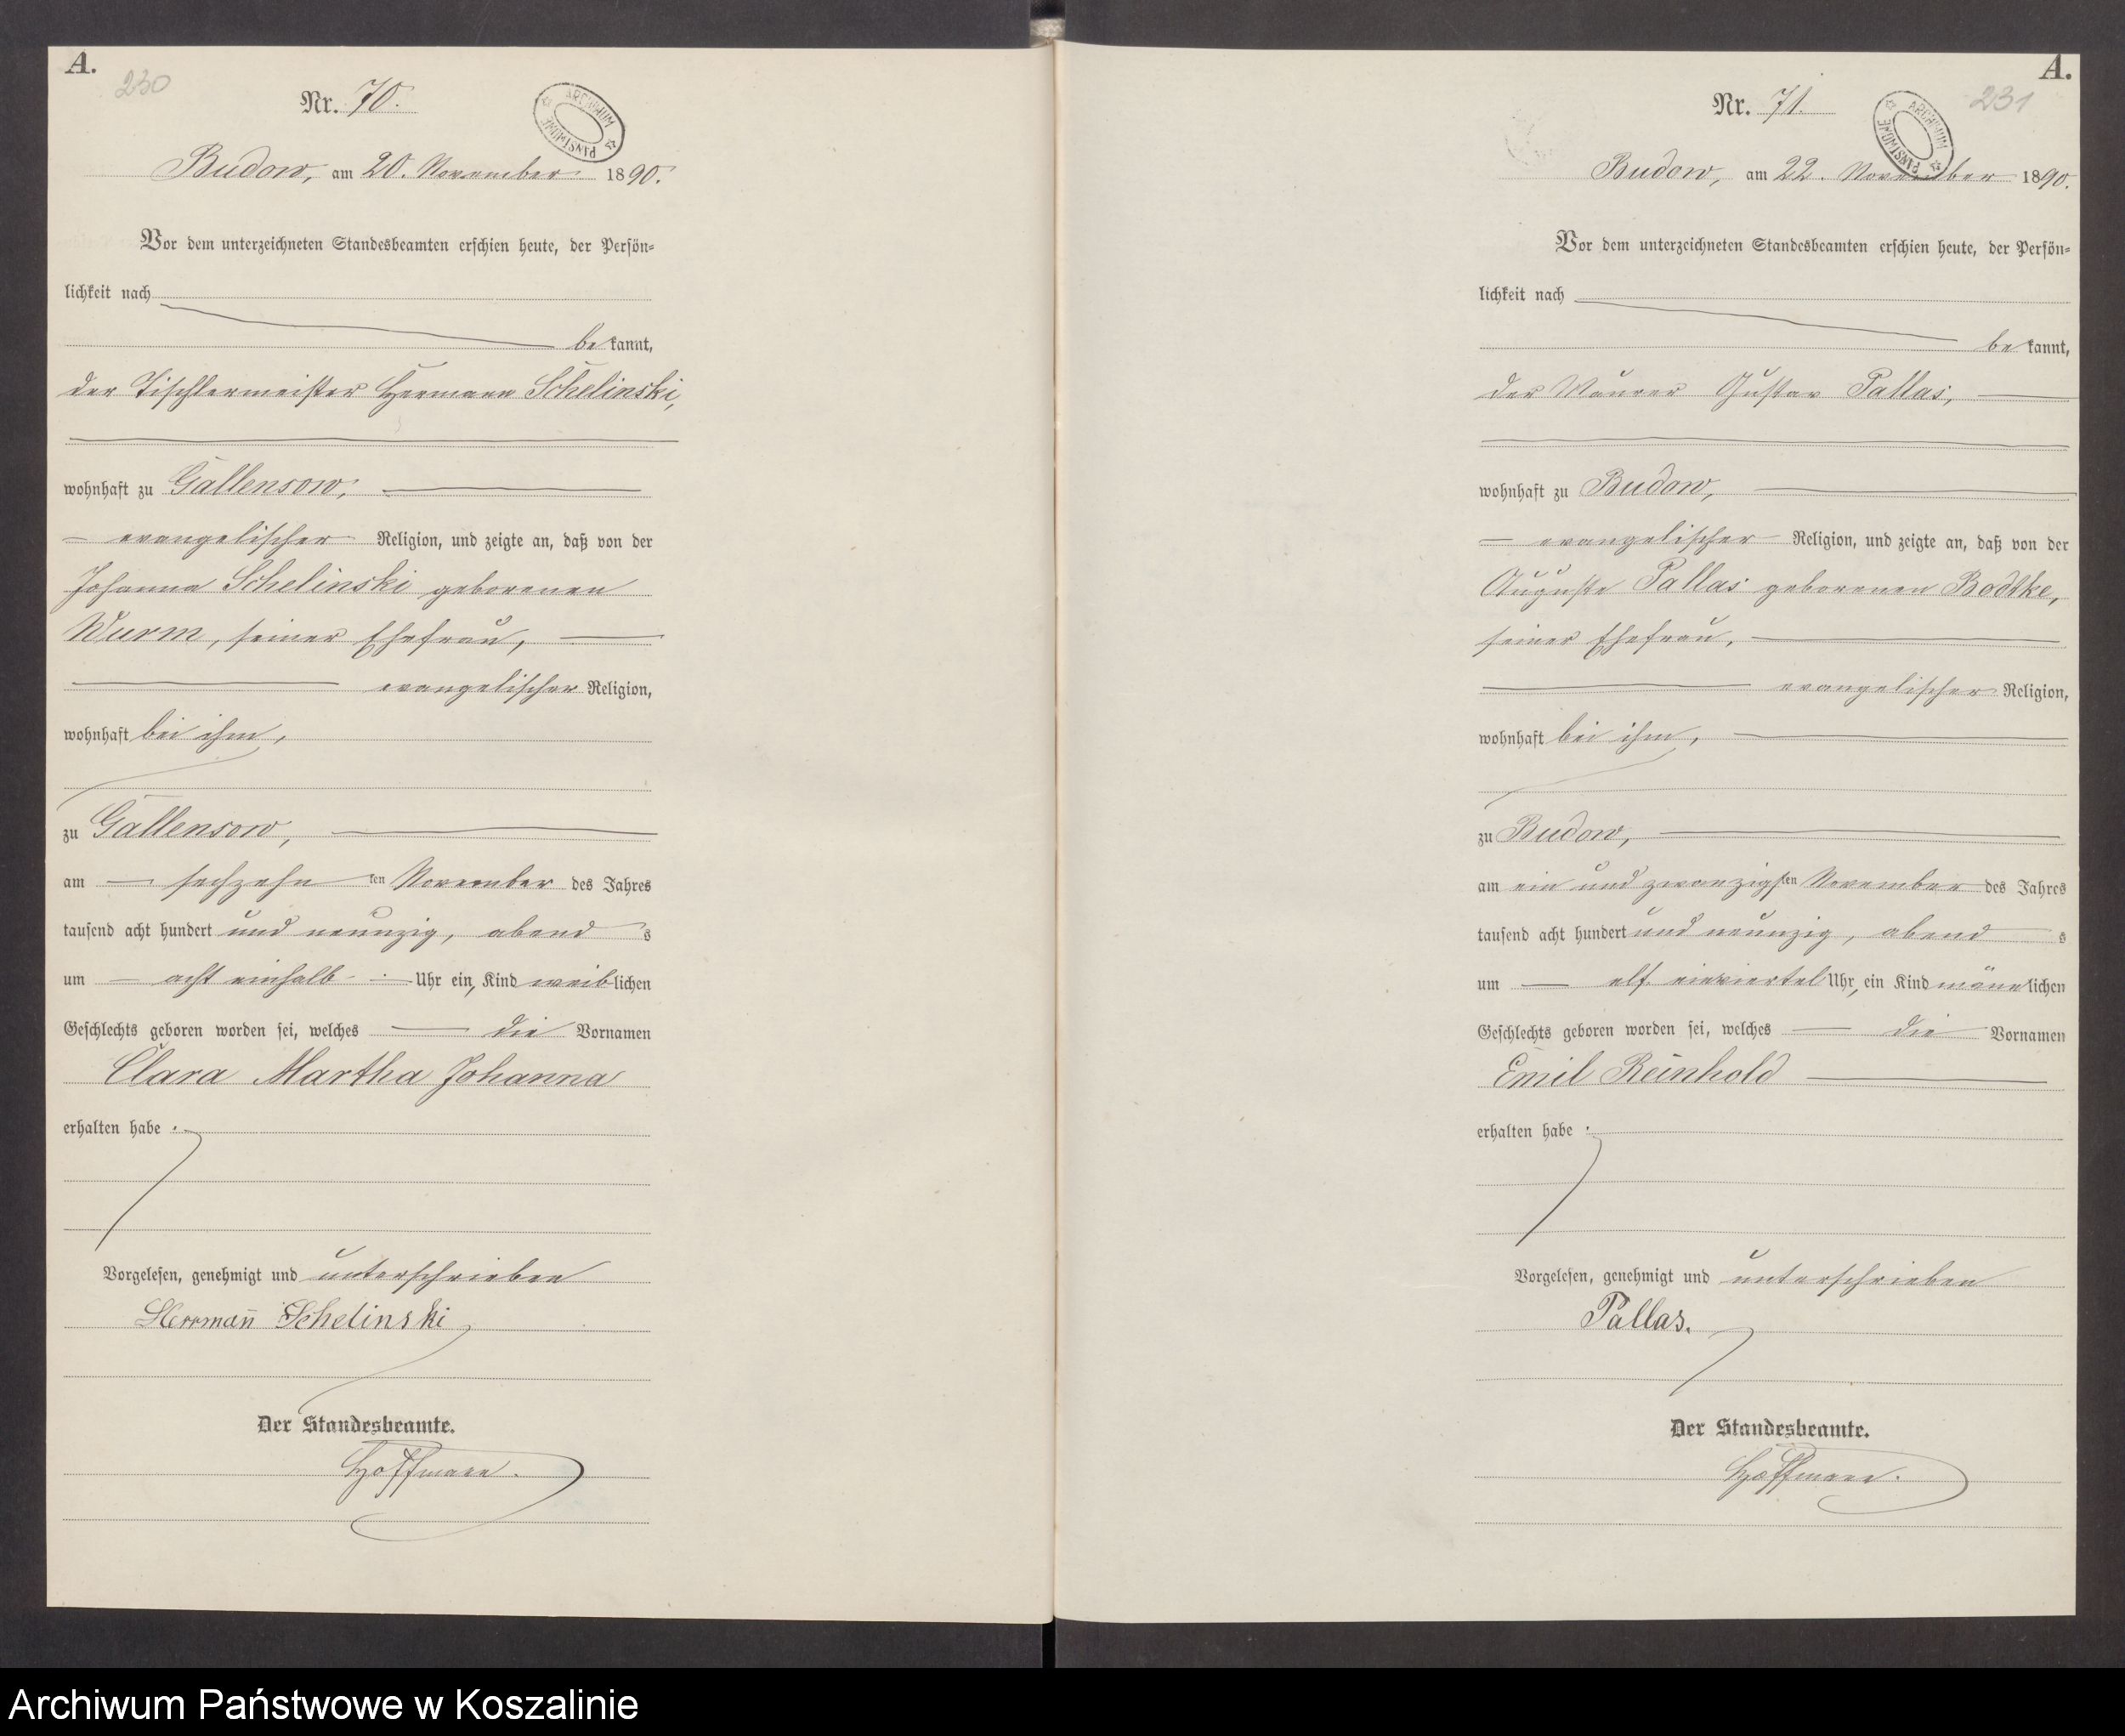 A.
230
Nr. 70.
ARCHIWUM PAŃSTWOWE
Budow, am 20. November 1890.
Vor dem unterzeichneten Standesbeamten erschien heute, der Persön-
lichkeit nach
bekannt,
der Tischlermeister Hermann Schelinski,
wohnhaft zu Gallensow,
evangelischer Religion, und zeigte an, daß von der
Johanna Schelinski geborenen
Wurm, seiner Ehefrau,
evangelischer Religion,
wohnhaft bei ihm,
zu Gallensow,
am sechzehnten November des Jahres
tausend acht hundert und neunzig, abends
um acht einhalb Uhr ein, Kind weiblichen
Geschlechts geboren worden sei, welches die Vornamen
Clara Martha Johanna
erhalten habe.
Vorgelesen, genehmigt und unterschrieben
Herrmann Schelinski
Der Standesbeamte.
Hoffmann.
A.
231
Nr. 71.
ARCHIWUM PAŃSTWOWE
Budow, am 22. November 1890.
Vor dem unterzeichneten Standesbeamten erschien heute, der Persön-
lichkeit nach
bekannt,
der Maurer Gustav Pallas,
wohnhaft zu Budow,
evangelischer Religion, und zeigte an, daß von der
Auguste Pallas geborenen Bodtke,
seiner Ehefrau,
evangelischer Religion,
wohnhaft bei ihm,
zu Budow,
am ein und zwanzigsten November des Jahres
tausend acht hundert und neunzig, abends
um elf einviertel Uhr, ein Kind männlichen
Geschlechts geboren worden sei, welches die Vornamen
Emil Reinhold
erhalten habe.
Vorgelesen, genehmigt und unterschrieben
Pallas.
Der Standesbeamte.
Hoffmann.
Archiwum Państwowe w Koszalinie